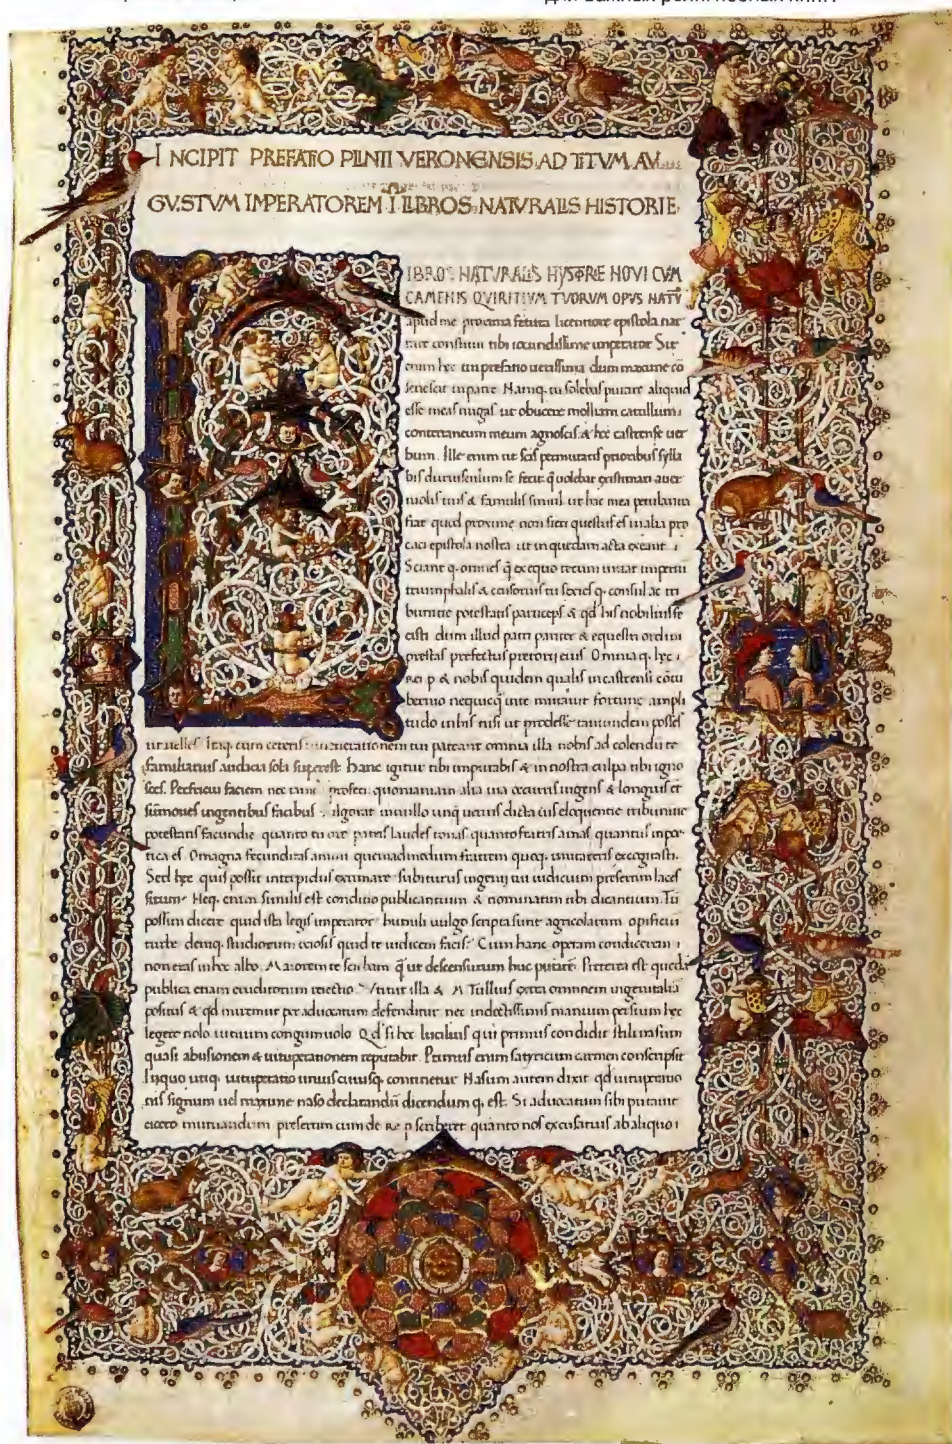 для важных религиозных книг.
INCIPIT PREFATIO PLINII VERONENSIS AD TITVM AV
GVSTVM IMPERATOREM I LIBROS NATVRALIS HISTORIE
L IBROS NATVRALIS HYSTORIE NOVI CVM
CAMENIS QVIRITIVM TVORVM OPVS NATV
apud me proxima fetura licentiore epistola nar
rare constitui tibi iocundissime imperator Sit
enim hec tui prefatio uerissima dum maxime cō
senescit in patre Namq. tu solebas putare aliquid
esse meas nugas ut obiicere molliam catullum
conterraneum meum agnoscis & hoc castrense uer
bum. Ille enim ut scis permutatis prioribus sylla
bis duriusculum se fecit q̄ uolebat existimari a uer
nolis tuis & famulis simul ut hac mea petulantia
fiat quod proxime non fieri questus es in alia pro
caci epistola nostra ut in quedam acta exeant
Sciant q. omnes q̄ ex equo tecum uiuat imperiu
triumphalis & censorius tu sexies q. consul ac tri
bunitie potestatis particeps & qd his nobilius fe
cisti dum illud patri pariter & equestri ordini
prestas prefectus pretorij eius Omnia q. hec
rei p & nobis quidem qualis in castrensi cōtu
bernio nequicq̄ in te mutauit fortune ampli
tudo in his nisi ut prodesse tantundem posses
ut uelles Itaq. cum ceteris in uenerationem tui pateant omnia illa nobis ad colendū te
familiarius audacia sola superest Hanc igitur tibi imputabis & in nostra culpa tibi igno
sces. Perfricui faciem nec tamen profeci quoniam alia uia occurris ingens & longius et
summoues ingentibus facibus fulgorat in ullo unq̄ uerius dicta uis eloquentie tribunitie
potestatis facundie quanto tu ore patris laudes tonas quanto fratris amas quantus in poe
tica es. O magna fecunditas animi quemadmodum fratrem quoq. imitareris excogitasti.
Sed hec quis possit intrepidus extimare subiturus ingenij tui iudicium presertim laces
situm Neq. enim similis est conditio publicantium & nominatim tibi dicantium. Tū
possim dicere quid ista legis imperator humili uulgo scripta sunt agricolarum opificū
turbe deniq. studiorum ociosis quid te iudicem facis Cum hanc operam condicerem
non eras in hoc albo Maiorem te sciebam q̄ ut descensurum huc putarē. Preterea est queda
publica etiam eruditorum reiectio Vtitur illa & M Tullius extra omnem ingenij alia
positus & qd miremur per aduocatum defenditur nec indoctissimis manium persium hec
legere nolo iunium congum uolo Qd si hec lucilius qui primus condidit stili nasum
quasi abusionem & uituperationem reputabit Primus enim satyricum carmen conscripsit
In quo utiq. uituperatio uniuscuiusq. continetur Nasum autem dixit qd uituperatio
nis signum uel maxime naso declarandū dicendum q. est. Si aduocatum sibi putauit
cicero mutuandum presertim cum de re p scriberet quanto nos excusatius ab aliquo